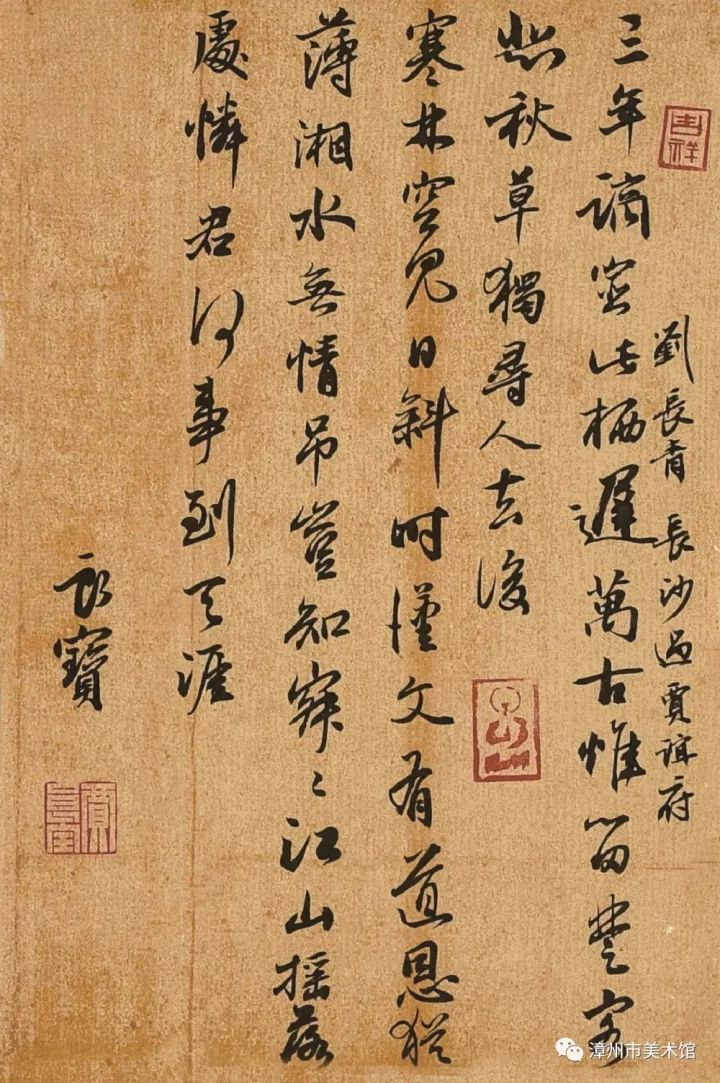 吉祥
劉長青長沙過賈誼府
三年謫宦此栖遲萬古惟留楚客
悲秋草獨尋人去後
寒林空見日斜時漢文有道恩猶
薄湘水無情吊豈知寂〻江山搖落
處憐君何事到天涯
寶
漳州市美术馆